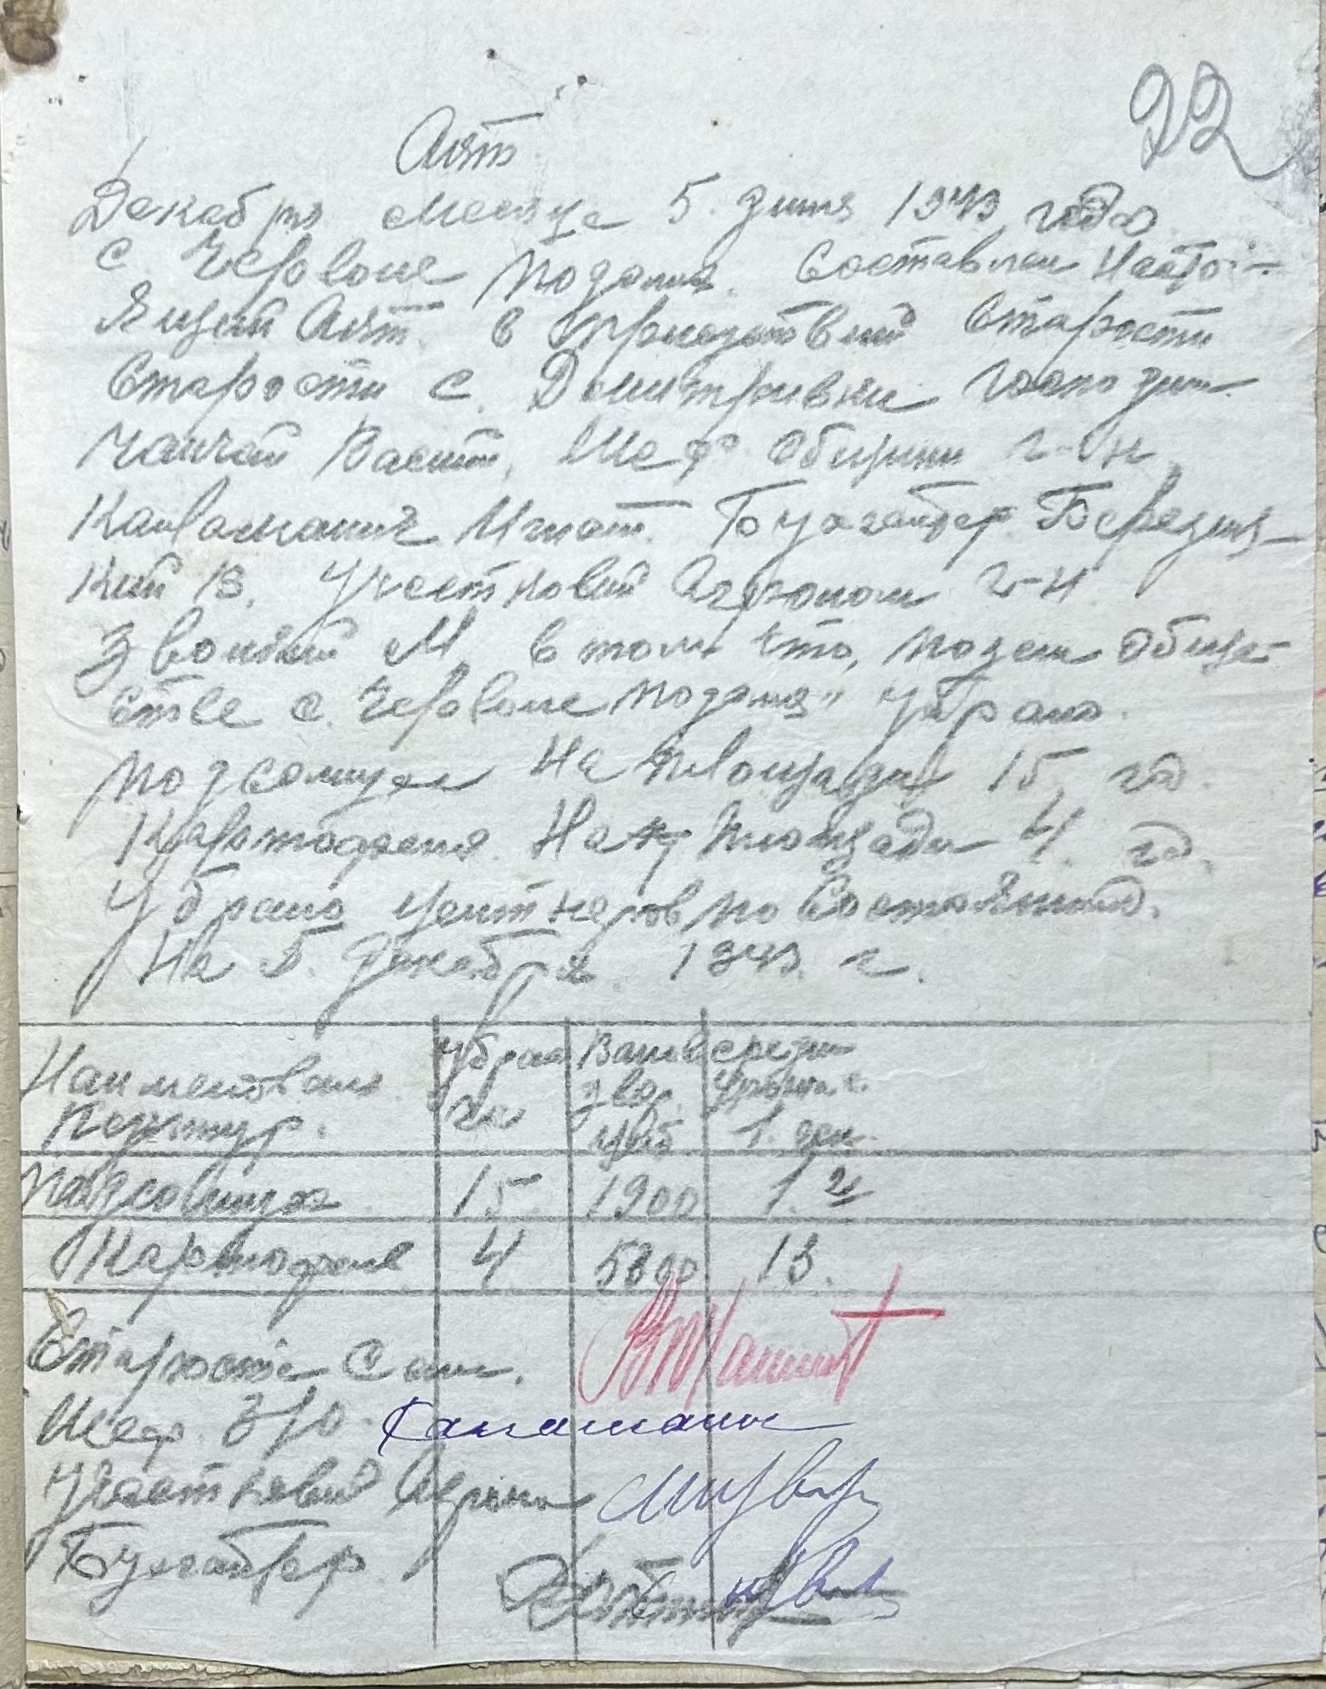 22
Акт
Декабря месяца 5 дння 1943 года
с Червоне Подоля. Составлен Насто-
ящий Акт. в присутствии Старости
Старости с. Дмитривки Господин
Васт. Шеф общини г-н
Каламанич Игнат. Бухгалтер Березня-
кий В. Участковий Агроном г-н
М в том что, подем обще-
стве с. Червоне Подоля" убрано.
подсолнуха На площади 15 га.
Картофеля На площади 4. га.
Убрано центнеров по Состоянию.
На 5. Декабря 1943. г.
Наименован. убран Валов средн
Культур. га збор. урожа с.
цнт 1. ген.
Подсолнух 15. 1900 1. 2
Картофель 4 5300 13.
Староста Сели.
Шеф. З/о.
Участковий Агроном
Бухгалтер